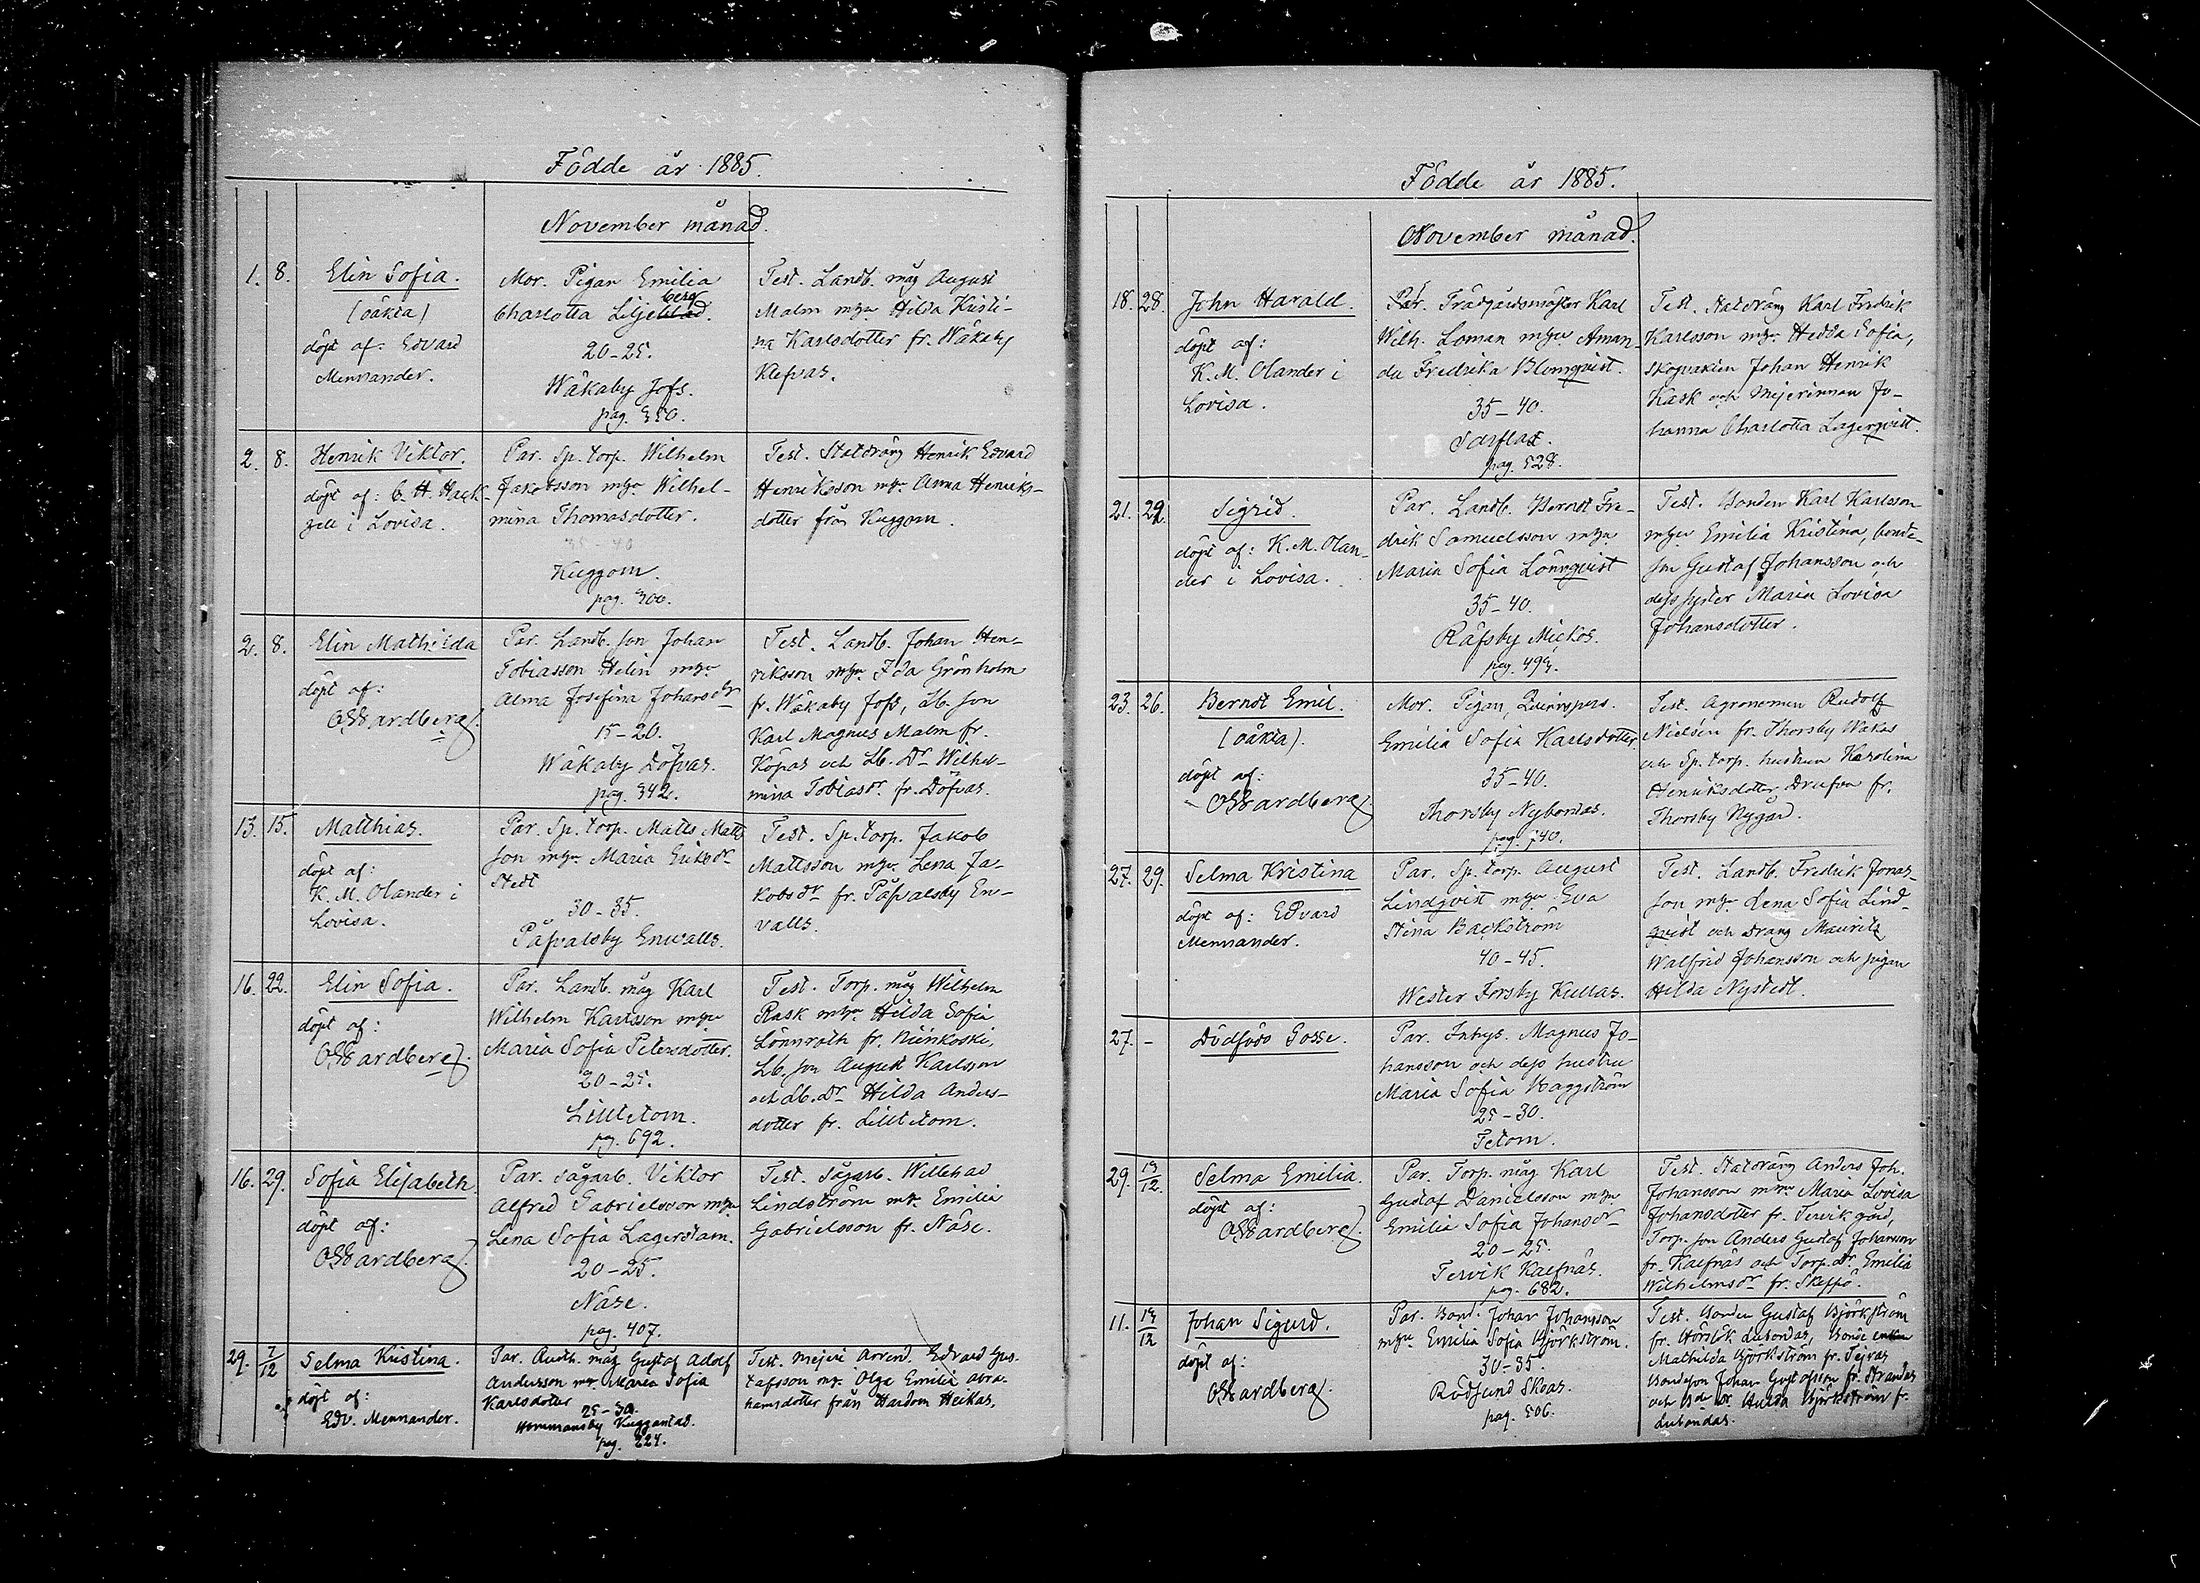 Födde år 1885.
November månad.
1. 8. Elin Sofia.
(oäkta)
döpt af: Edvard
Mennander.
Mor. Pigan Emilia
Charlotta Liljeberg.
20-25.
Wäkaby Jofs.
pag. 350.
Test. Landb. måg August
Malm m hu Hilda Kristi-
na Karlsdotter fr. Wäkaby
Klefvas.
2. 8. Henrik Viktor.
döpt af: C. H. Hack-
zell i Lovisa.
Par. Sp. torp. Wilhelm
Jakobsson m hu Wilhel-
mina Thomasdotter.
35-40
Kuggom.
pag. 300.
Test. Statdräng Henrik Edvard
Henriksson m hu Anna Henriks-
dotter från Kuggom.
2. 8. Elin Mathilda
döpt af:
O Gardberg.
Par. Landb. son Johan
Tobiasson Helin m hu
Alma Josefina Johansdr
15-20.
Wäkaby Döfvas.
pag. 342.
Test. Landb. Johan Hen-
riksson m hu Ida Grönholm
fr. Wäkaby Jofs, Lb. son
Karl Magnus Malm fr.
Köpas och Lb. Dr Wilhel-
mina Tobiasdr. fr. Döfvas.
13. 15. Matthias.
döpt af:
K. M. Olander i
Lovisa.
Par. Sp. torp. Matts Matts
son m hu Maria Eriksdr
Stedt
30-35.
Påfvalsby Enwalls.
Test. Sp. torp. Jakob
Mattsson m hu Lena Ja-
kobsdr fr. Påfvalsby En-
valls.
16. 22. Elin Sofia.
döpt af:
O Gardberg.
Par. Landb. måg Karl
Wilhelm Karlsson m hu
Maria Sofia Petersdotter.
20-25.
Lilltetom.
pag. 692.
Test. Torp. måg Wilhelm
Rask m hu Hilda Sofia
Lönnroth fr. Niinkoski,
Lb. son August Karlsson
och Lb. Dr Hilda Anders-
dotter fr. Lilltetom.
16. 29. Sofia Elisabeth
döpt af:
O Gardberg.
Par. sågarb. Viktor
Alfred Gabrielsson m hu
Lena Sofia Lagerstam.
20-25.
Näse.
pag. 407.
Test. Sågarb. Willehad
Lindström m hu Emilia
Gabrielsson fr. Näse.
29. 7/12 Selma Kristina.
döpt af:
Edv. Mennander.
Par. Landb. måg Gustaf Adolf
Andersson m hu Maria Sofia
Karlsdotter
25-30
Hommansby Kuggontas.
pag. 224.
Test. Mejeri Arrend. Edvard Gus-
tafsson m hu Olga Emilia Abra-
hamsdotter från Hardom Heikas.
Födde år 1885.
November månad.
18. 28. John Harald.
döpt af:
K. M. Olander i
Lovisa.
Par. Trädgårdsmäster Karl
Wilh. Loman m hu Aman-
da Fredrika Blomqvist.
35-40.
Sarflax.
pag. 528.
Test. Statdräng Karl Fredrik
Karlsson m hu Hedda Sofia,
skogvakten Johan Henrik
Kask och mejerinnan Jo-
hanna Charlotta Lagerqvist.
21. 29. Sigrid.
döpt af: K. M. Olan-
der i Lovisa.
Par. Landb. Berndt Fre-
drik Samuelsson m hu
Maria Sofia Lönnqvist
35-40.
Räfsby Mickos.
pag. 499.
Test. Bonden Karl Karlsson
m hu Emilia Kristina, bonde-
son Gustaf Johansson och
dess syster Maria Lovisa
Johansdotter.
23. 26. Berndt Emil.
(oäkta).
döpt af:
O Gardberg.
Mor. Pigan, Qvinspers.
Emilia Sofia Karlsdotter
35-40.
Thorsby Nybondas.
pag. 740.
Test. Agronomen Rudolf
Nielsén fr. Thorsby Wäkas
och Sp. torp. hustrun Karolina
Henriksdotter Drufva fr.
Thorsby Nygård.
27. 29. Selma Kristina
döpt af: Edvard
Mennander.
Par. Sp. torp. August
Lindqvist m hu Eva
Stina Backström
40-45.
Wester Forsby Kullas.
Test. Landb. Fredrik Jonas-
son m hu Lena Sofia Lind-
qvist och dräng Maurits
Walfrid Johansson och pigan
Hilda Nystedt.
27. - Dödfödd Gosse.
Par. Inhys. Magnus Jo-
hansson och dess hustru
Maria Sofia Haggström
25-30.
Tetom.
29. 13/12. Selma Emilia.
döpt af:
O Gardberg.
Par. Torp. måg Karl
Gustaf Danielsson m hu
Emilia Sofia Johansdr
20-25.
Tervik Kalfnäs.
pag. 682.
Test. Statdräng Anders Joh.
Johansson m hu Maria Lovisa
Johansdotter fr. Tervik gård,
Torp. son Anders Gustaf Johansson
fr. Kalfnäs och Torp. dr. Emilia
Wilhelmsdr fr. Skeppö.
11. 13/12 Johan Sigurd.
döpt af:
O Gardberg.
Par. Bond. Johan Johansson
m hu Emilia Sofia Björkström.
30-35.
Rödsund Skoas.
pag. 506.
Test. Bonden Gustaf Björkström
fr. Lubondas, Bonde enkan
Mathilda Björkström fr. Tejvas,
Bondeson Johan Gustafsson fr. Strandas
och Bde dr. Hulda Björkström fr.
Lubondas.